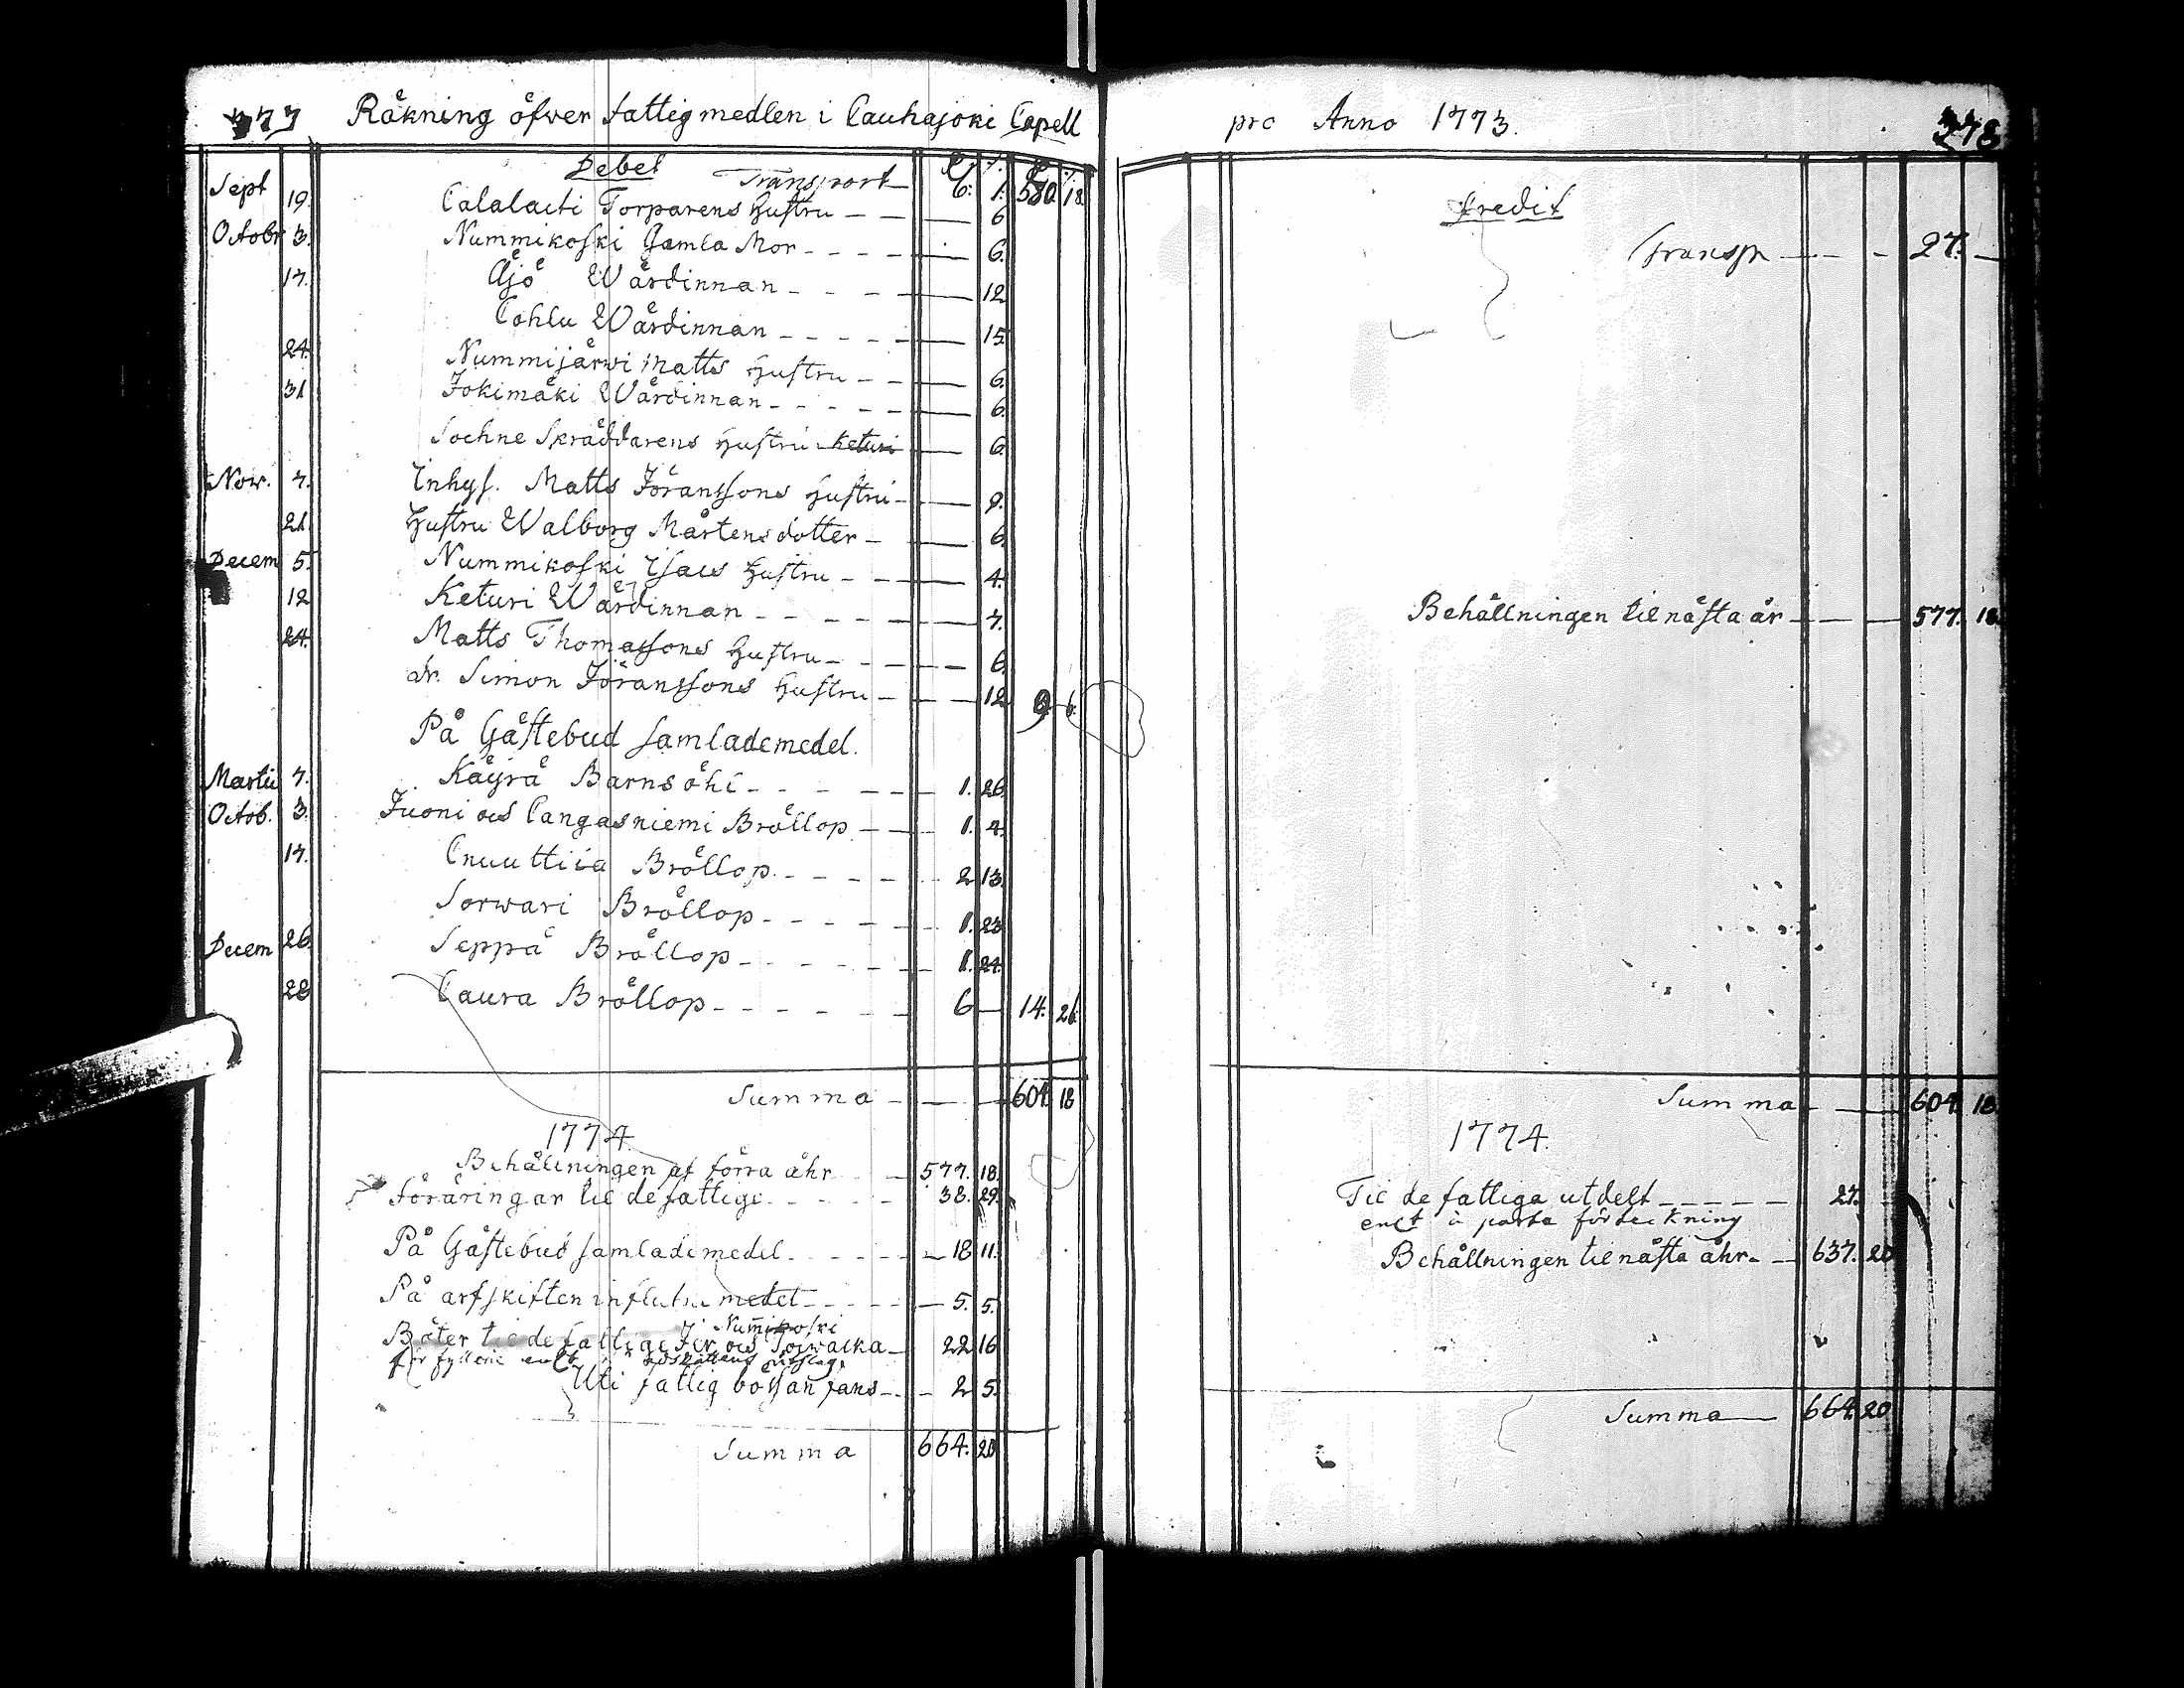 377 Räkning öfver fattigmedlen i Cauhajoki Capell
Debet
Transport 6. 1. 580. 18.
Sept 19. Calalacti Torparens Hustru - - 6
Octobr 3. Nummikoski Gamla Mor - - - - 6.
17. Äjö Wärdinnan - - - 12
Cohlu Wärdinnan - - - - - 15.
24. Nummijärwi Matts Hustru - - 6.
31 Jokimäki Wärdinnan - - - - - 6.
Sochne Skräddarens Hustru Keturi 6.
Nov. 7. Inhys. Matts Jöranssons Hustru - 9.
21 Hustru Walborg Mårtensdotter - 6.
Decem 5. Nummikoski Isacs Hustru - - 4.
12 Keturi Wärdinnan - - - - - 7.
24. Matts Thomassons Hustru - - - 6
Dr. Simon Jöranssons Hustru - 12 9 6.
På Gästebud samlade medel.
Martii 7. Käyrä Barnsöhl - - - - - 1. 26.
Octob. 3. Juoni och Cangasniemi Bröllop - - 1. 4.
17. Cnuuttila Bröllop - - - - 2 13.
Sorwari Bröllop - - - - 1. 23
Decem 26. Seppä Bröllop - - - - - 1. 24.
28 Caura Bröllop - - - - - 6 — 14. 26.
Summa - — - 604. 18
1774.
Behållningen af förra åhr 577. 18.
Föräringar til de fattige - - - - - 38. 29.
På Gästebud samlade medel - - - - - 18 11.
På arfskiften influtne medel - - - - 5. 5.
Nummikoski
Böter til de fattige och Toiwacka - 22 16
för fylleri enl. utslag
Uti fattig börsan fans - - - 2 5.
Summa 664. 20
pro Anno 1773. 378
Credit
Transp - - - 27. —
Behållningen til nästa år - — — 577. 18.
Summa - — 604. 18.
1774.
Til de fattiga utdelt - - - - - 27.
enl. à parta förteckning
Behållningen til nästa åhr - - 637. 20
Summa — 664. 20